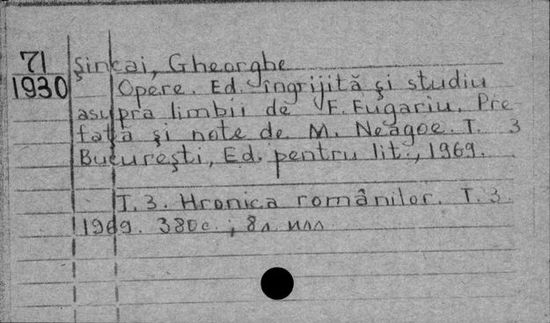 71 Şinkai, Gheorghe
1930 Opere. Ed. îngrijită şi studiu
asupra limbii de F. Fugariu. Pre
faţă şi note de M. Neagoe. T. 3
Bucureşti, Ed. pentru lit., 1969.
T. 3. Hronica românilor. T. 3.
1969. 380 c.;